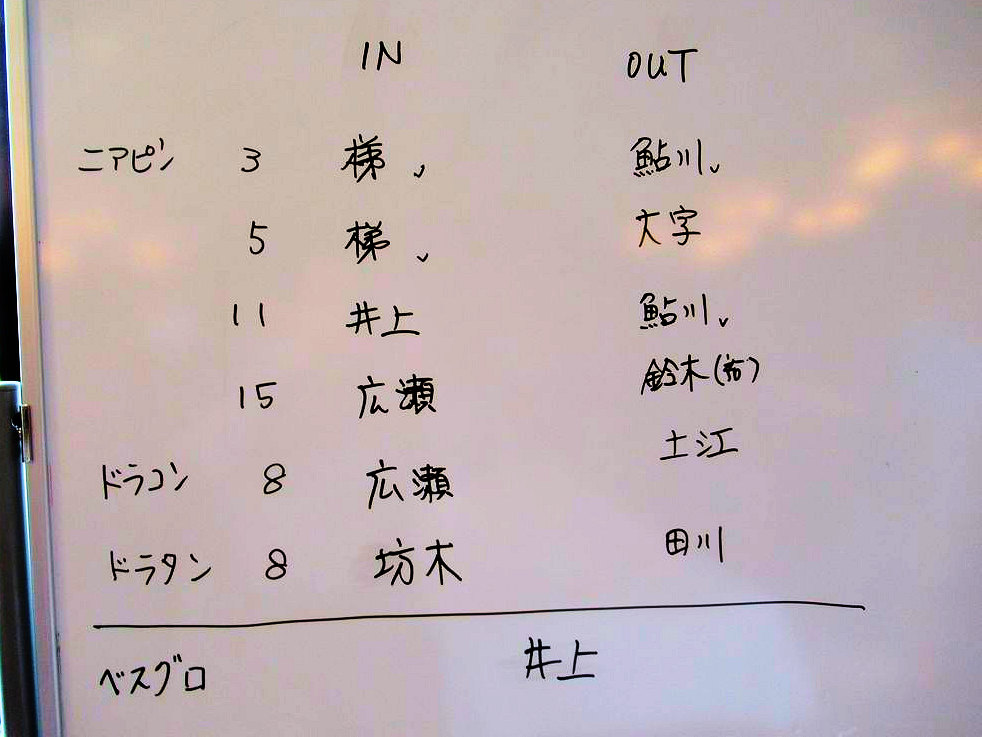 IN OUT
ニアピン 3 梯 鮎川
5 梯 大字
11 井上 鮎川
15 広瀬 鈴木
ドラコン 8 広瀬 土江
ドラタン 8 坊木 田川
ベスグロ 井上